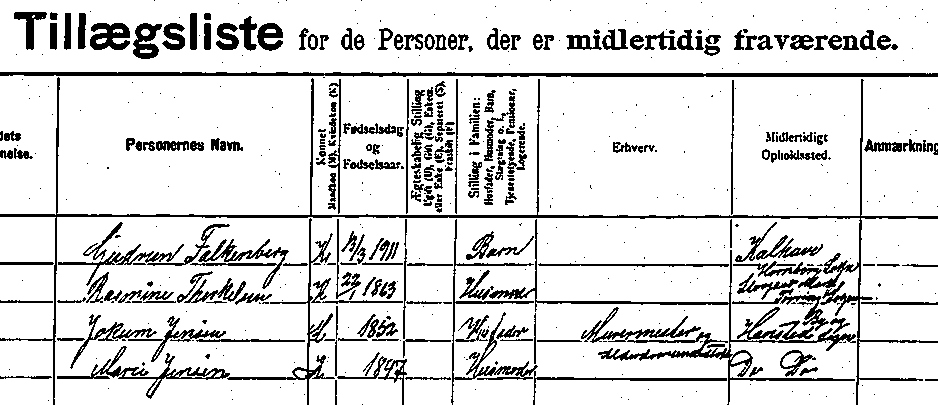 Tillægsliste for de Personer, der er midlertidig fraværende.
Personernes Navn.
Kønnet
Mandkøn (M). Kvindekøn (K)
Fødselsdag
og
Fødselsaar.
Ægteskabelig Stilling
Ugift (U), Gift (G), Enkem.
eller Enke (E), Separeret (S),
Fraskilt (F)
Stilling i Familien:
Husfader, Husmoder, Barn,
Slægtning o. l.,
Tjenestetyende, Pensionær,
Logerende.
Erhverv.
Midlertidigt
Opholdssted.
Anmærkning
Gudrun Falkenberg K 13/3 1911 Barn Kalhave
Hornborg Sogn
Rasmine Therkelsen K 22/1 1863 Husmoder
Jokum Jensen 1852 Husfader Murermester og Hansted
Marie Jensen K 1847 Husmoder Do Do